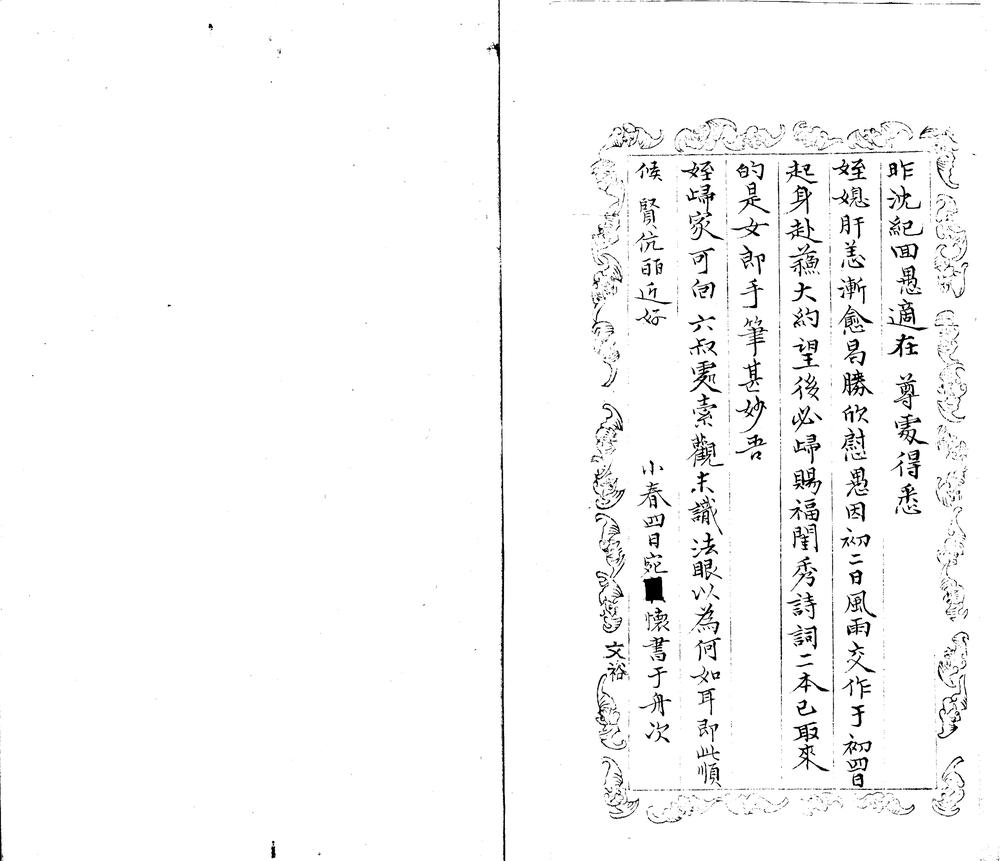 昨沈紀回愚適在 尊處得悉
姪媳肝恙漸愈曷勝欣慰愚因初二日風雨交作于初四日
起身赴蘓大約望後必歸賜福閨秀詩詞二本已取來
的是女郎手筆甚妙吾
姪歸家可向 六叔處索觀未識法眼以為何如耳即此順
候 賢伉丽近好
小春四日宛 懷書于舟次
文裕